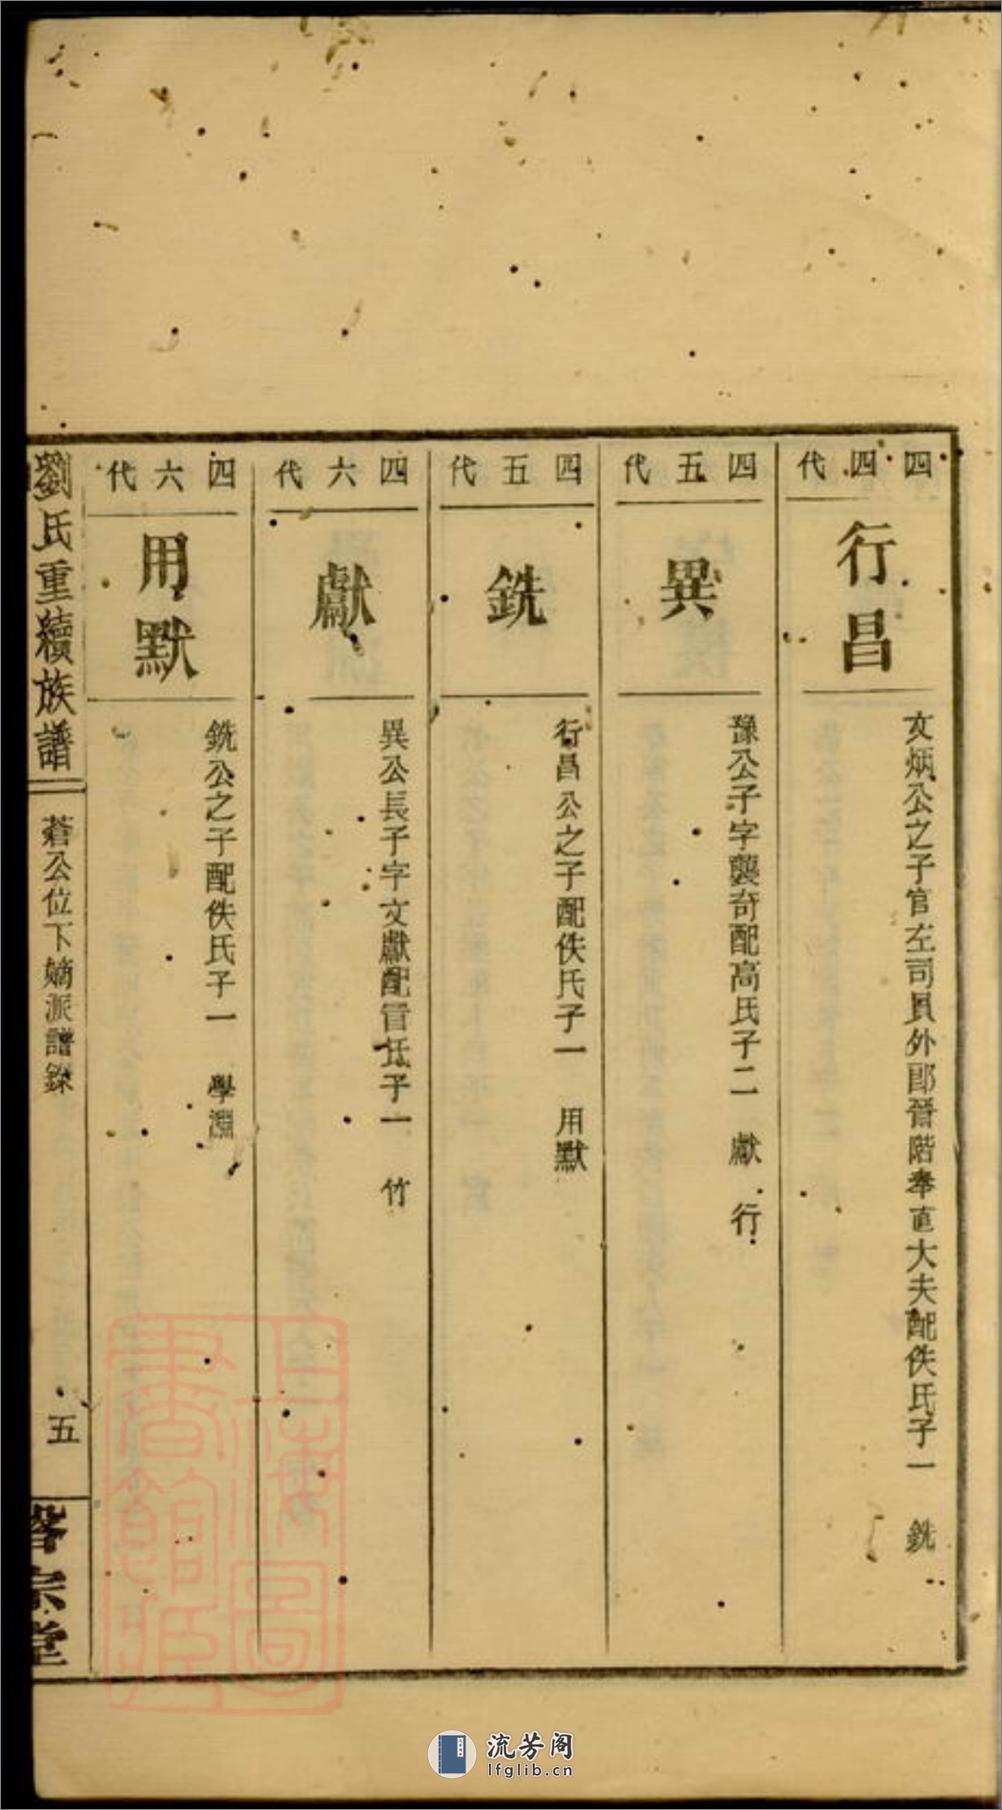 四四代
行昌
文炳公之子官左司員外郎晉階奉直大夫配佚氏子一 銑
四五代
異
豫公子字襲奇配高氏子二 獻 行
四五代
銑
行昌公之子配佚氏子一 用默
四六代
獻
異公長子字文獻配官氏子一 竹
四六代
用默
銑公之子配佚氏子一 學淵
劉氏重續族譜
蒼公位下嫡派譜錄
五
宗堂
上海圖書館藏
流芳阁
lfglib.cn